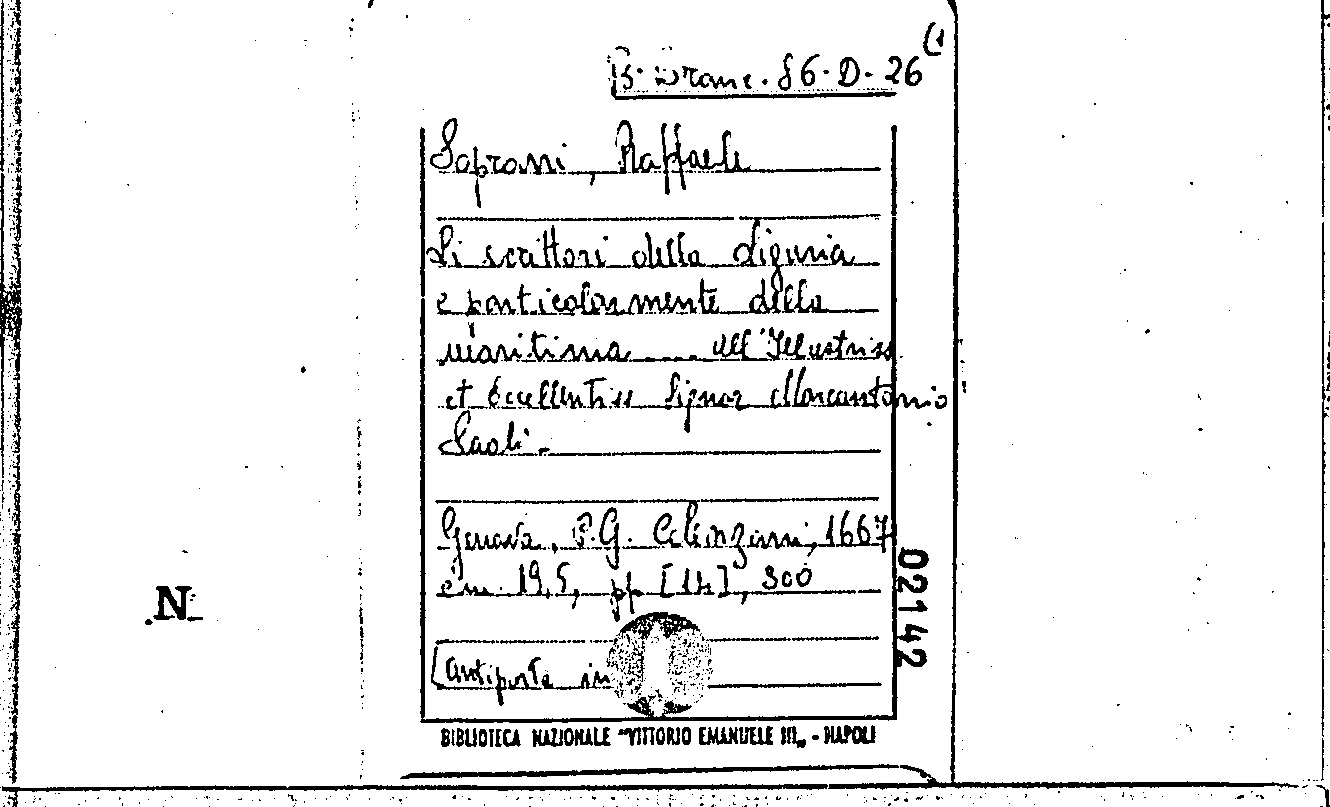 (1
B. Branc. 86. D. 26
Soprani, Raffaele
Li scrittori della Liguria
e particolarmente della
maritima .... all'Illustriss
et Eccellentiss Signor Marcantonio
Saoli.
Genova, P.G. Calenzani, 1667
cm. 19,5, pp [14], 300
[antiporta in
BIBLIOTECA NAZIONALE "VITTORIO EMANUELE III„ - NAPOLI
02142
N